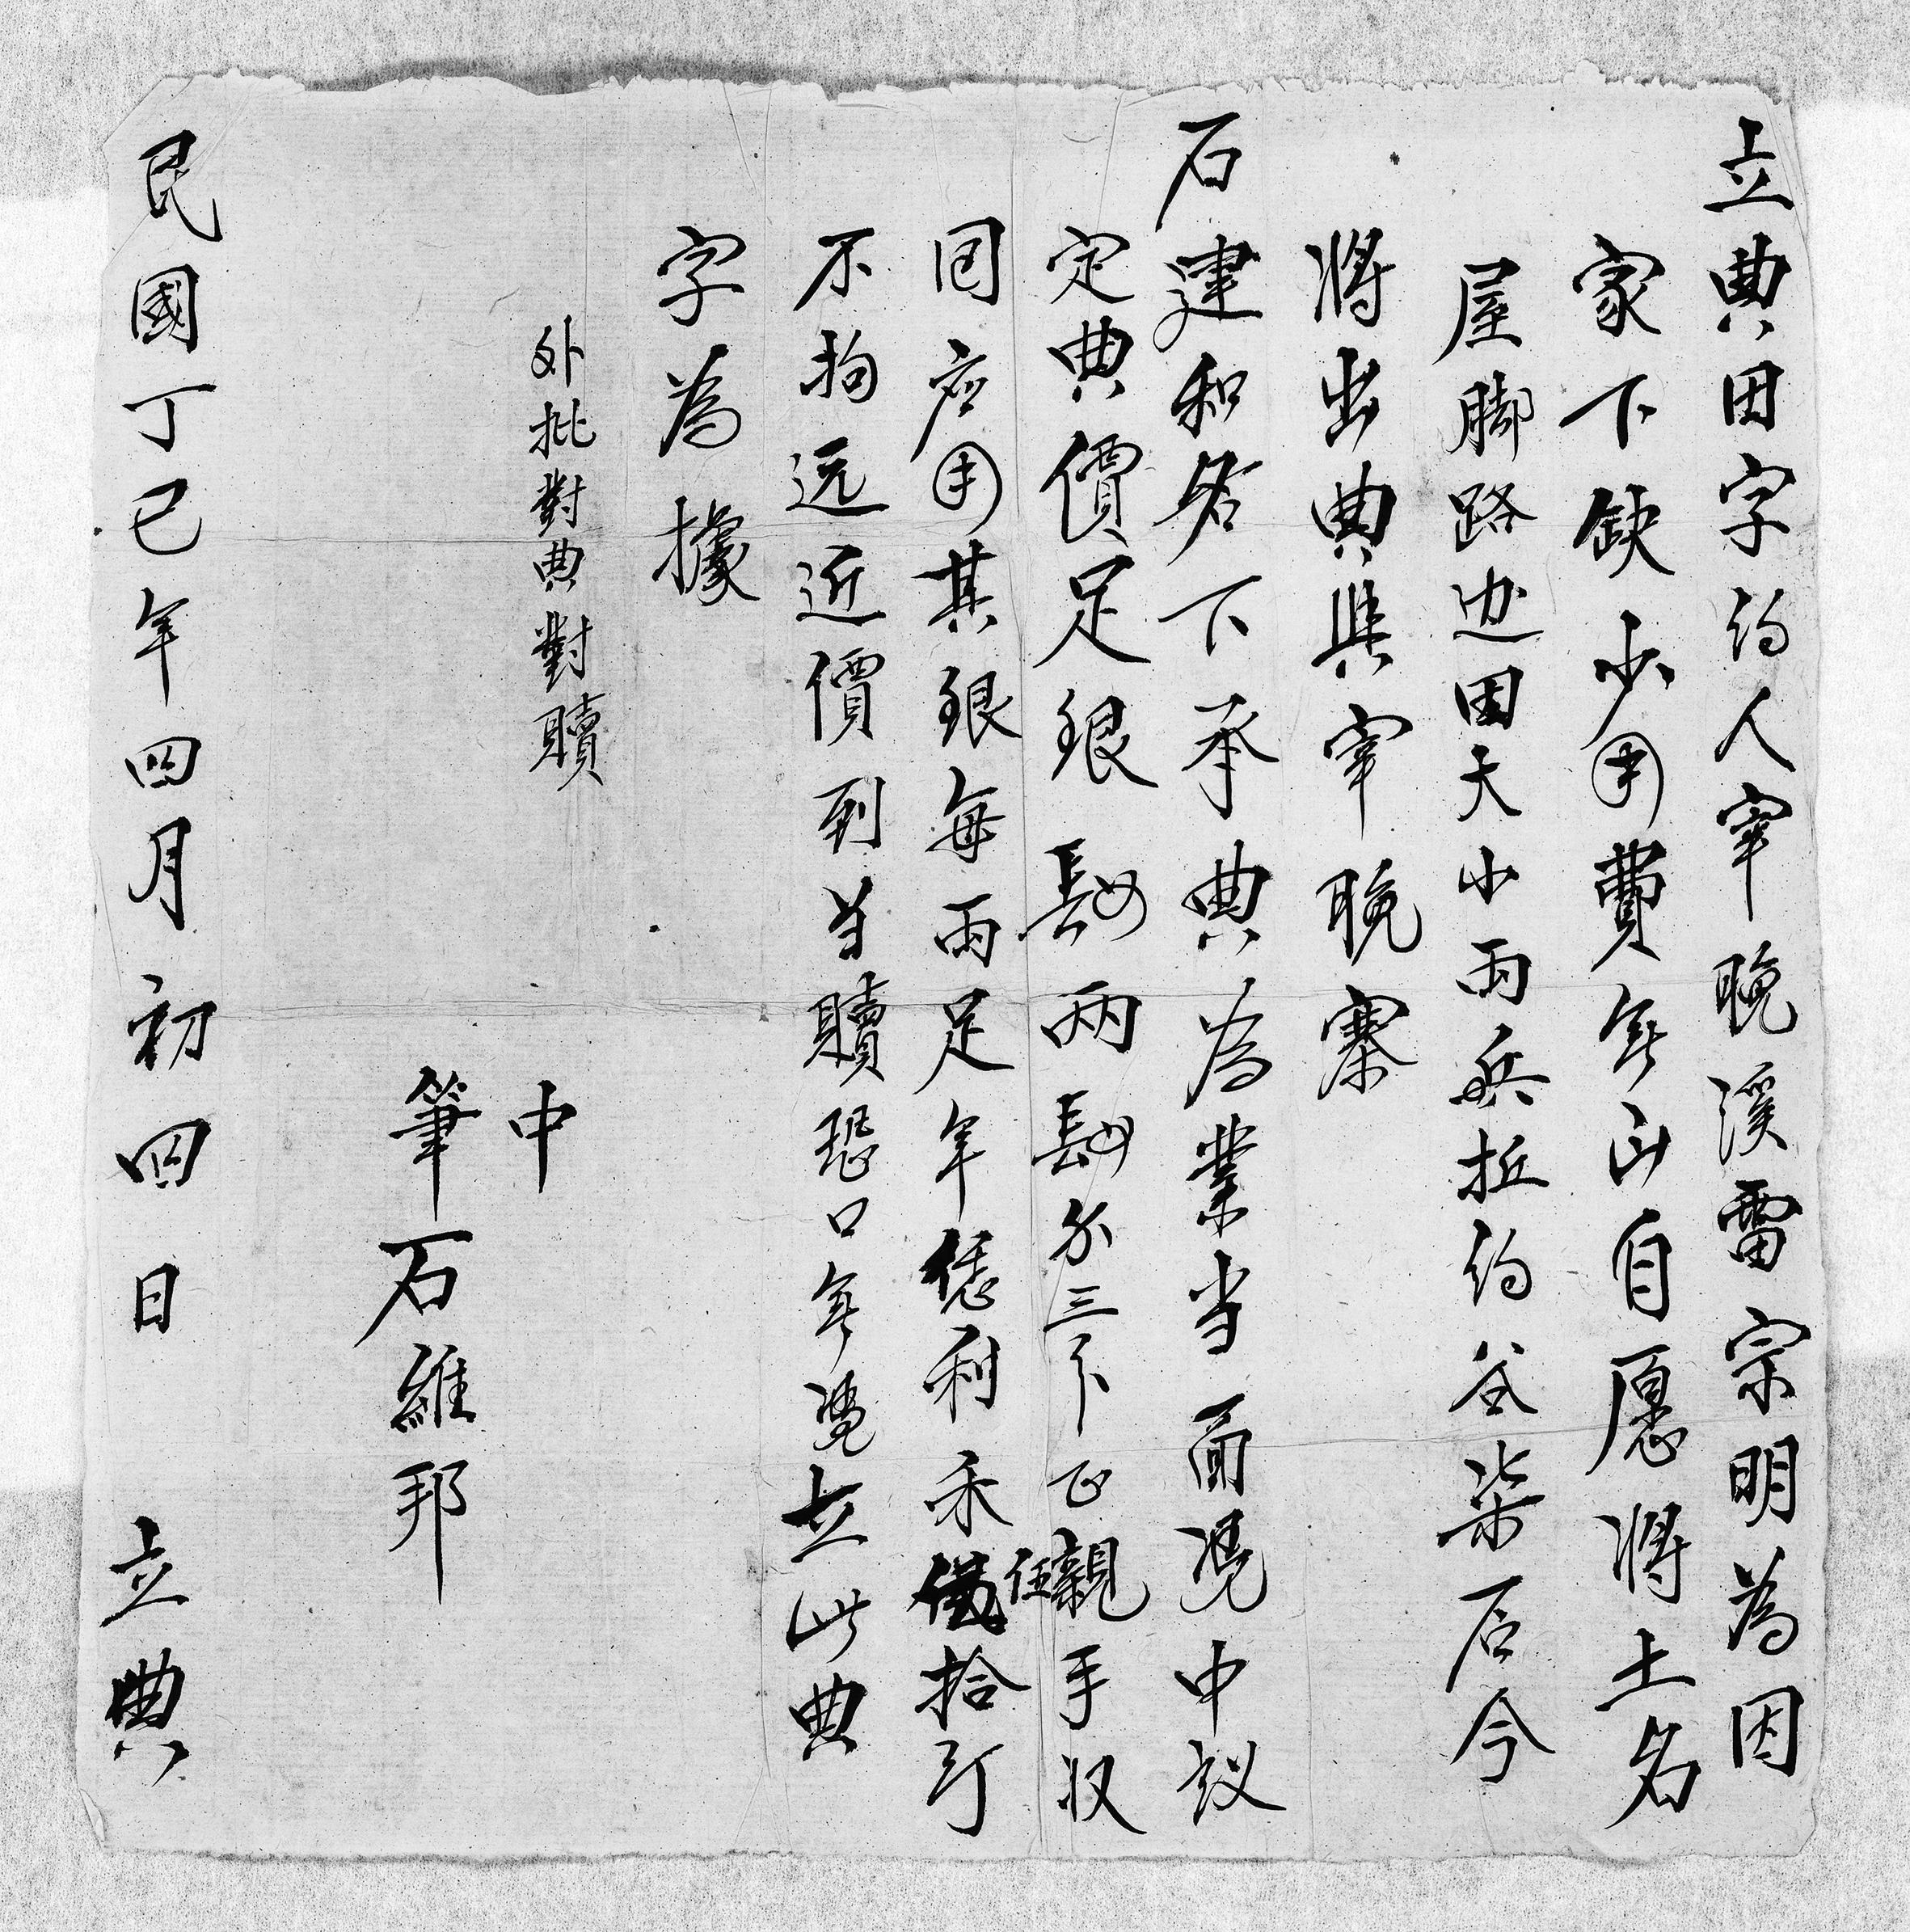 立典田字約人宰晚溪雷宗明為因
家下缺少用費無出自愿將土名
屋脚路边田大小兩共坵約谷柒石今
將出典與宰晚寨
石建和名下承典為業当面凴中议
定典價足銀 兩 分三下正親手収
回應用其銀每兩足年 利禾 拾斤
不拘远近價到当贖恐口無凴立此典
字為據
外批對典對贖
中
筆石維邦
民國丁巳年四月初四日 立典